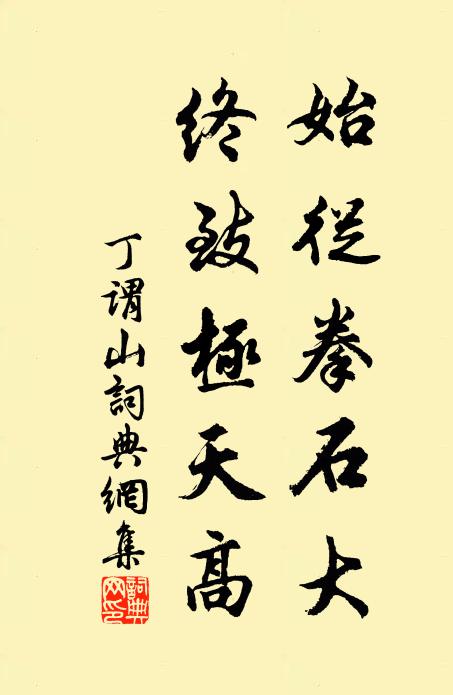 始從拳石大
終致極天高
丁謂山詞典網集
詞典網印